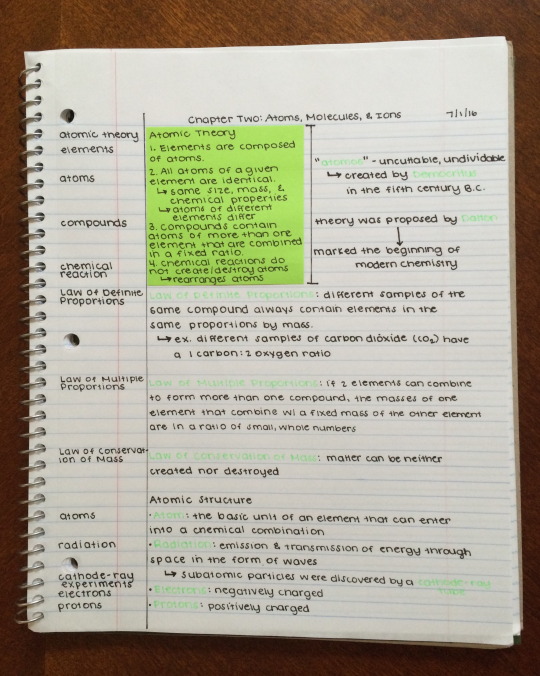 Chapter Two: Atoms, Molecules, & Ions 7/1/16
atomic theory
elements
atoms
compounds
chemical
reaction
Atomic Theory
1. Elements are composed
of atoms.
2. All atoms of a given
element are identical.
↳ same size, mass, &
chemical properties
↳ atoms of different
elements differ
3. Compounds contain
atoms of more than one
element that are combined
in a fixed ratio.
4. Chemical reactions do
not create/destroy atoms
↳ rearranges atoms
"atomos" - uncuttable, undividable
↳ created by Democritus
in the fifth century B.C.
theory was proposed by Dalton
marked the beginning of
modern chemistry
Law of Definite
Proportions
Law of Definite Proportions: different samples of the
same compound always contain elements in the
same proportions by mass.
↳ ex. different samples of carbon dioxide (CO₂) have
a 1 carbon:2 oxygen ratio
Law of Multiple
Proportions
Law of Multiple Proportions: if 2 elements can combine
to form more than one compound, the masses of one
element that combine w/ a fixed mass of the other element
are in a ratio of small, whole numbers
Law of Conservat-
ion of Mass
Law of Conservation of Mass: matter can be neither
created nor destroyed
Atomic Structure
atoms
• Atom: the basic unit of an element that can enter
into a chemical combination
radiation
• Radiation: emission & transmission of energy through
space in the form of waves
cathode-ray
experiments
↳ subatomic particles were discovered by a cathode-ray
tube
electrons
• Electrons: negatively charged
protons
• Protons: positively charged